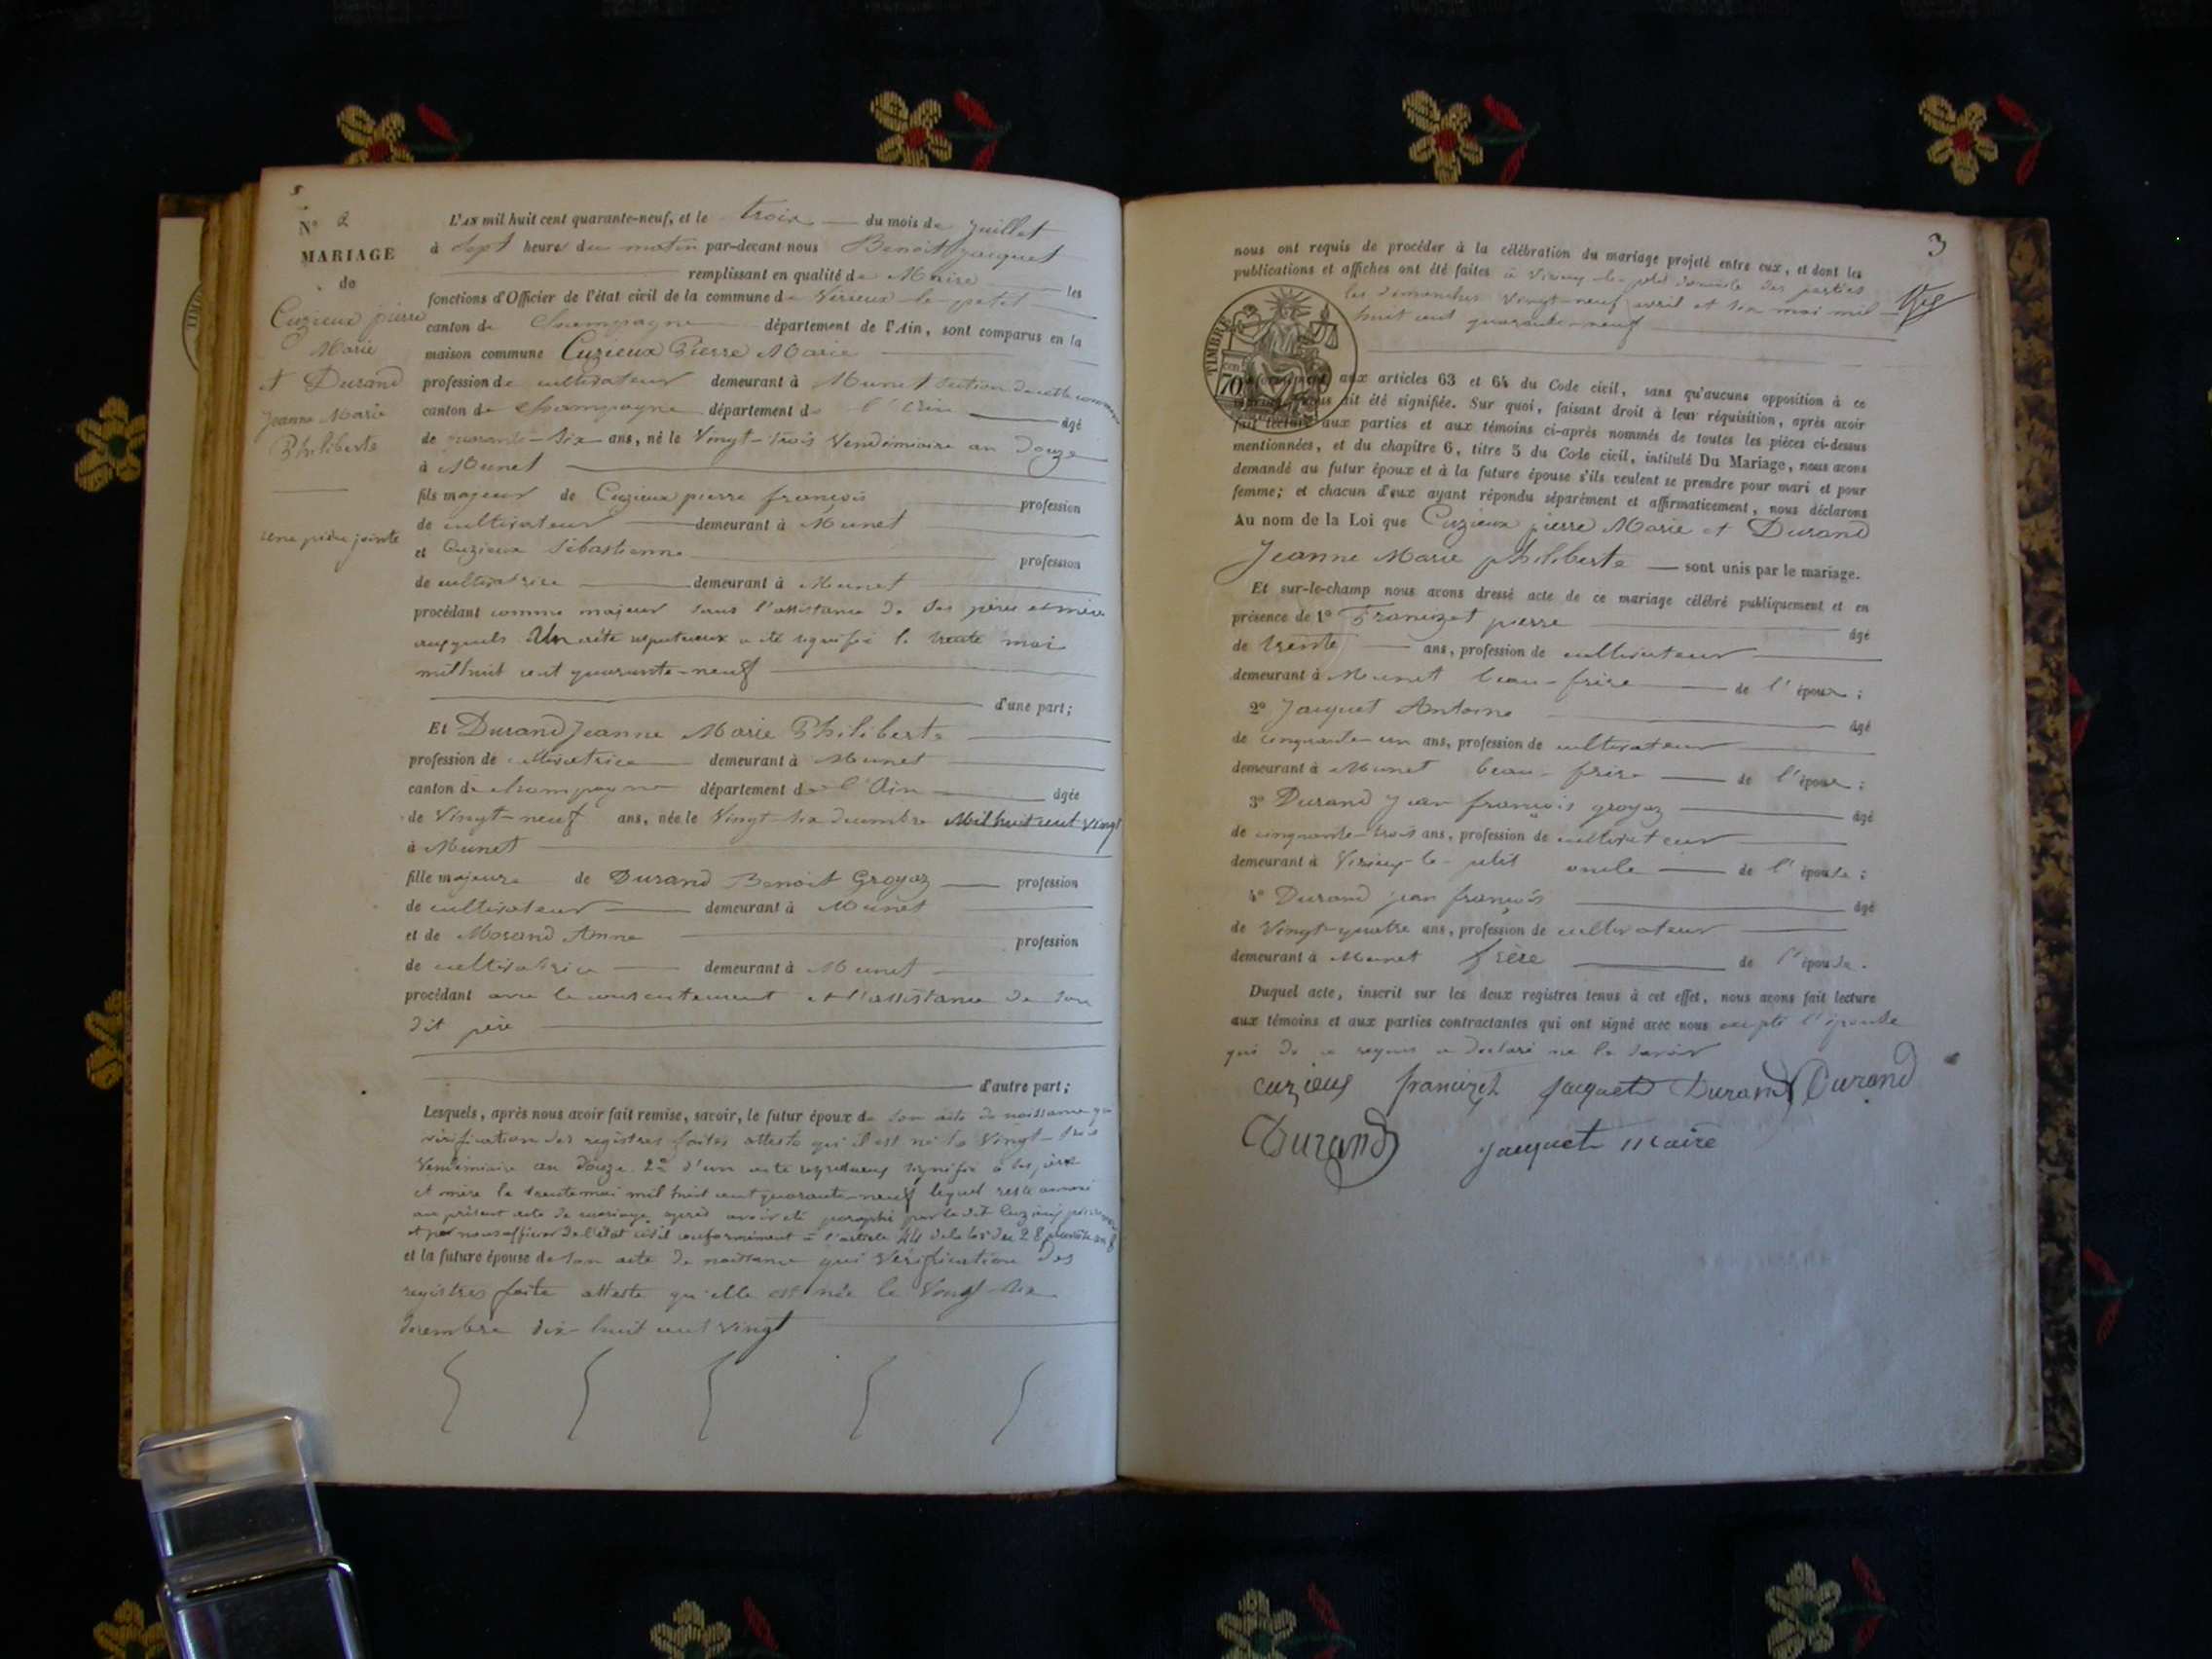 N° 2
MARIAGE
de
Cuzieux pierre
Marie
et Durand
Jeanne Marie
Philiberte
une pièce jointe
L'AN mil huit cent quarante-neuf, et le trois du mois de juillet
à sept heures du matin par-devant nous Benoit Jacquet
remplissant en qualité de Maire les
fonctions d'Officier de l'état civil de la commune de Virieux-le-petit
canton de Champagne département de l'Ain, sont comparus en la
maison commune Cuzieux Pierre Marie
profession de cultivateur demeurant à Munet section de cette commune
canton de Champagne département de l'Ain âgé
de quarante-six ans, né le Vingt-trois Vendémiaire an Douze
à Munet
fils majeur de Cuzieux pierre françois profession
de cultivateur demeurant à Munet
et Cuzieux Sébastienne profession
de cultivatrice demeurant à Munet
procédant comme majeur sans l'assistance de ses père et mère
auxquels un acte respectueux a été signifié le trente mai
mil huit cent quarante-neuf
d'une part;
Et Durand Jeanne Marie Philiberte
profession de cultivatrice demeurant à Munet
canton de champagne département de l'Ain âgée
de Vingt-neuf ans, née le Vingt-six décembre Mil huit cent vingt
à Munet
fille majeure de Durand Benoit Groyaz profession
de cultivateur demeurant à Munet
et de Morand Anne profession
de cultivatrice demeurant à Munet
procédant avec le consentement et l'assistance de son
dit père
d'autre part;
Lesquels, après nous avoir fait remise, savoir, le futur époux de son acte de naissance qui
vérification des registres faites atteste qu'il est né le Vingt-trois
Vendémiaire an Douze. 2° d'un acte respectueux signifié à ses père
et mère le trente mai mil huit cent quarante-neuf lequel reste annexé
au présent acte de mariage après avoir été paraphé par le dit Cuzieux
et par nous officier de l'état civil conformément à l'article 44 de la loi du 28 pluviôse an 8
et la future épouse de son acte de naissance qui Vérification des
registres faite atteste qu'elle est née le Vingt-six
décembre dix-huit cent vingt
3
nous ont requis de procéder à la célébration du mariage projeté entre eux, et dont les
publications et affiches ont été faites à Virieu-le-petit domicile des parties
les dimanches Vingt-neuf avril et six mai mil
huit cent quarante-neuf
TIMBRE
70
aux articles 63 et 64 du Code civil, sans qu'aucune opposition à ce
ait été signifiée. Sur quoi, faisant droit à leur réquisition, après avoir
fait lecture aux parties et aux témoins ci-après nommés de toutes les pièces ci-dessus
mentionnées, et du chapitre 6, titre 5 du Code civil, intitulé Du Mariage, nous avons
demandé au futur époux et à la future épouse s'ils veulent se prendre pour mari et pour
femme; et chacun d'eux ayant répondu séparément et affirmativement, nous déclarons
Au nom de la Loi que Cuzieux pierre Marie et Durand
Jeanne Marie philiberte sont unis par le mariage.
Et sur-le-champ nous avons dressé acte de ce mariage célébré publiquement et en
présence de 1° Francizet pierre âgé
de trente ans, profession de cultivateur
demeurant à Munet beau-frère de l'époux;
2° Jacquet Antoine âgé
de cinquante-un ans, profession de cultivateur
demeurant à Munet beau-frère de l'époux;
3° Durand Jean françois groyaz âgé
de cinquante-trois ans, profession de cultivateur
demeurant à Virieux-le-petit oncle de l'épouse;
4° Durand jean françois âgé
de Vingt-quatre ans, profession de cultivateur
demeurant à Munet frère de l'épouse.
Duquel acte, inscrit sur les deux registres tenus à cet effet, nous avons fait lecture
aux témoins et aux parties contractantes qui ont signé avec nous excepté l'épouse
qui de ce requis a déclaré ne le savoir
cuzieux francizet Jacquet Durand Durand
Durand Jacquet Maire